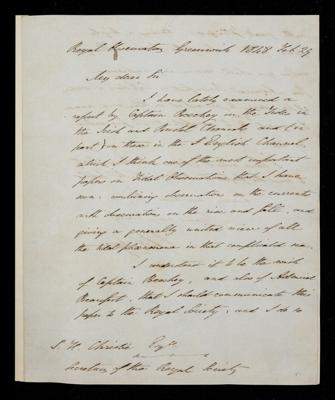 Royal Observatory Greenwich 1848 Feb 29
My dear Sir
I have lately examined a
report by Captain Beechey on the Tides in
the Irish and Bristol Channels and (in
part) on those in the English Channel,
which I think one of the most important
papers on Tidal Observations that I have
seen: combining observation on the currents
with observation on the rise and fall, and
giving a generally united view of all
the tidal phenomena in that complicated sea.
I understand it to be the wish
of Captain Beechey, and also of Admiral
Beaufort, that I should communicate this
paper to the Royal Society, and I do so
S. H. Christie Esqre
Secretary of the Royal Society